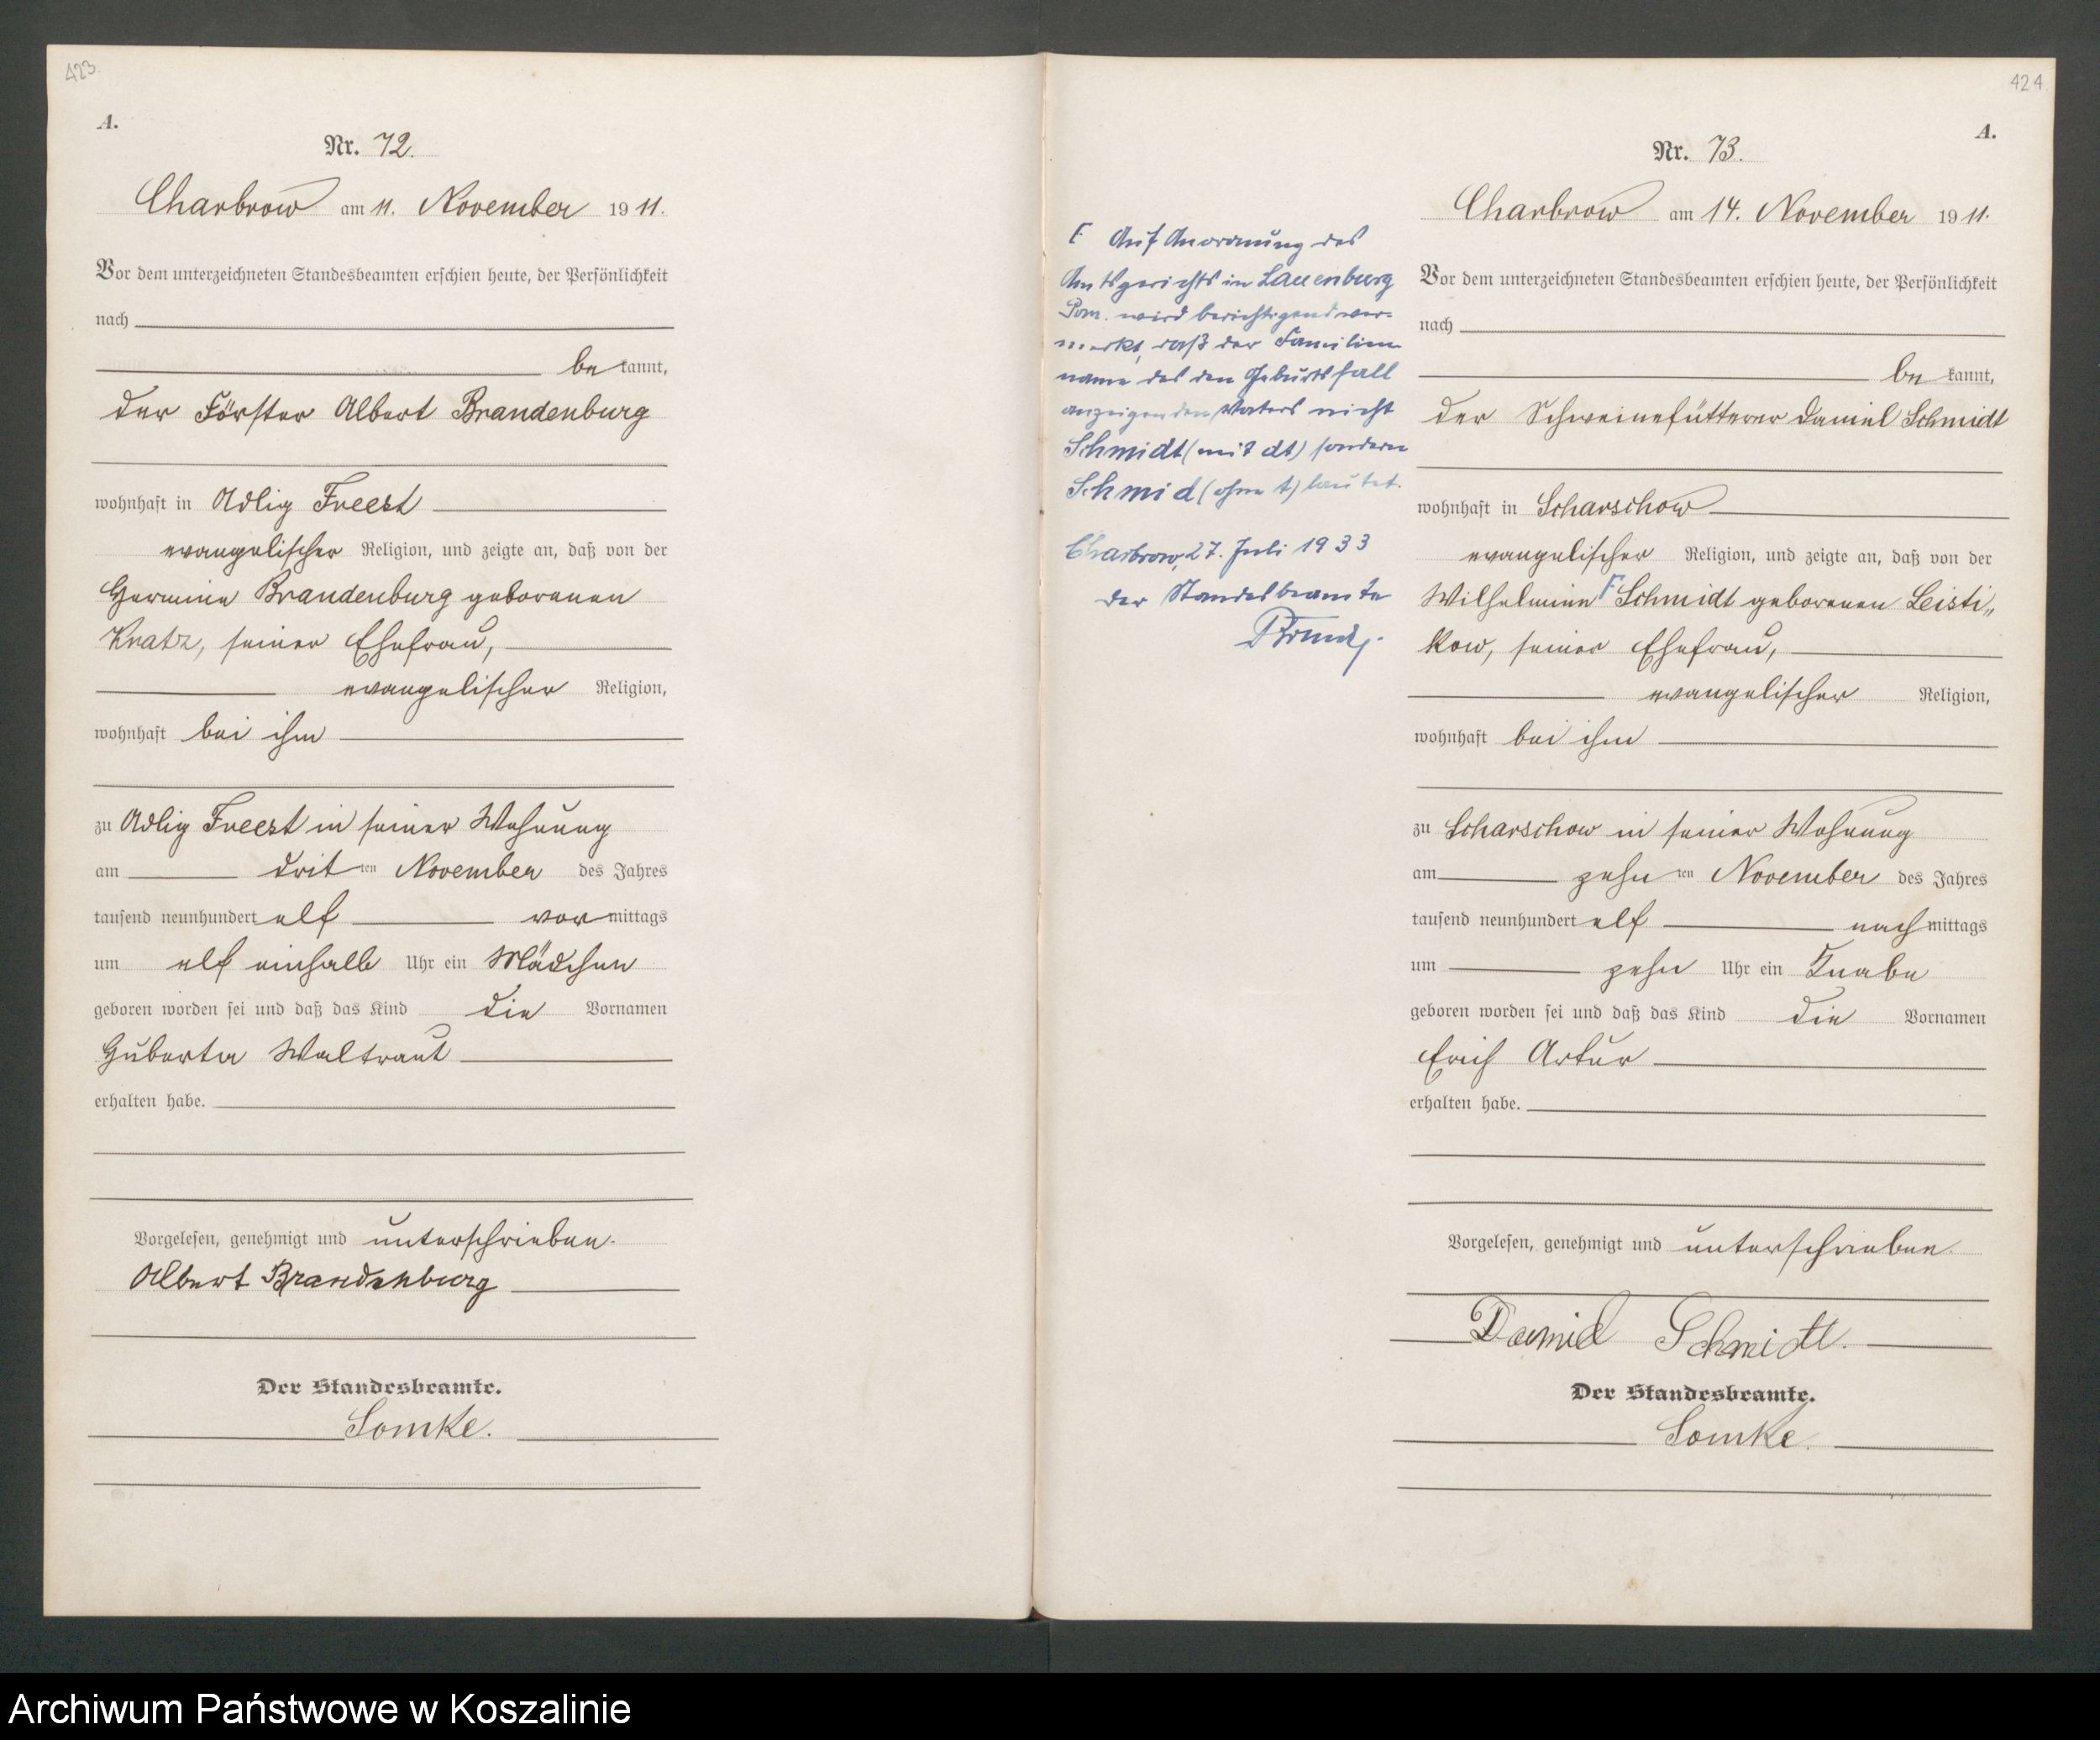 423.
A.
Nr. 72.
Charbrow am 11. November 1911.
Vor dem unterzeichneten Standesbeamten erschien heute, der Persönlichkeit
nach
be kannt,
der Förster Albert Brandenburg
wohnhaft in Adlig Freest
evangelischer Religion, und zeigte an, daß von der
Hermine Brandenburg geborenen
Kratz, seiner Ehefrau,
evangelischer Religion,
wohnhaft bei ihm
zu Adlig Freest in seiner Wohnung
am dritten November des Jahres
tausend neunhundert elf vormittags
um elf einhalb Uhr ein Mädchen
geboren worden sei und daß das Kind die Vornamen
Huberta Waltraut
erhalten habe.
Vorgelesen, genehmigt und unterschrieben.
Albert Brandenburg
Der Standesbeamte.
Lomke.
424
A.
Nr. 73.
Charbrow am 14. November 1911.
Vor dem unterzeichneten Standesbeamten erschien heute, der Persönlichkeit
nach
be kannt,
der Schweinefütterer Daniel Schmidt
wohnhaft in Scharschow
evangelischer Religion, und zeigte an, daß von der
Wilhelmine Schmidt geborenen Leisti„
kow, seiner Ehefrau,
evangelischer Religion,
wohnhaft bei ihm
zu Scharschow in seiner Wohnung
am zehnten November des Jahres
tausend neunhundert elf nachmittags
um zehn Uhr ein Knabe
geboren worden sei und daß das Kind die Vornamen
Erich Artur
erhalten habe.
Vorgelesen, genehmigt und unterschrieben.
Daniel Schmidt.
Der Standesbeamte.
Lomke.
Auf Anordnung des
Amtsgerichts in Lauenburg
Pom. wird berichtigend ver-
merkt, daß der Familien
name des den Geburtsfall
anzeigenden Vaters nicht
Schmidt (mit dt) sondern
Schmid (ohne t) lautet.
Charbrow, 27. Juli 1933
Der Standesbeamte
Archiwum Państwowe w Koszalinie